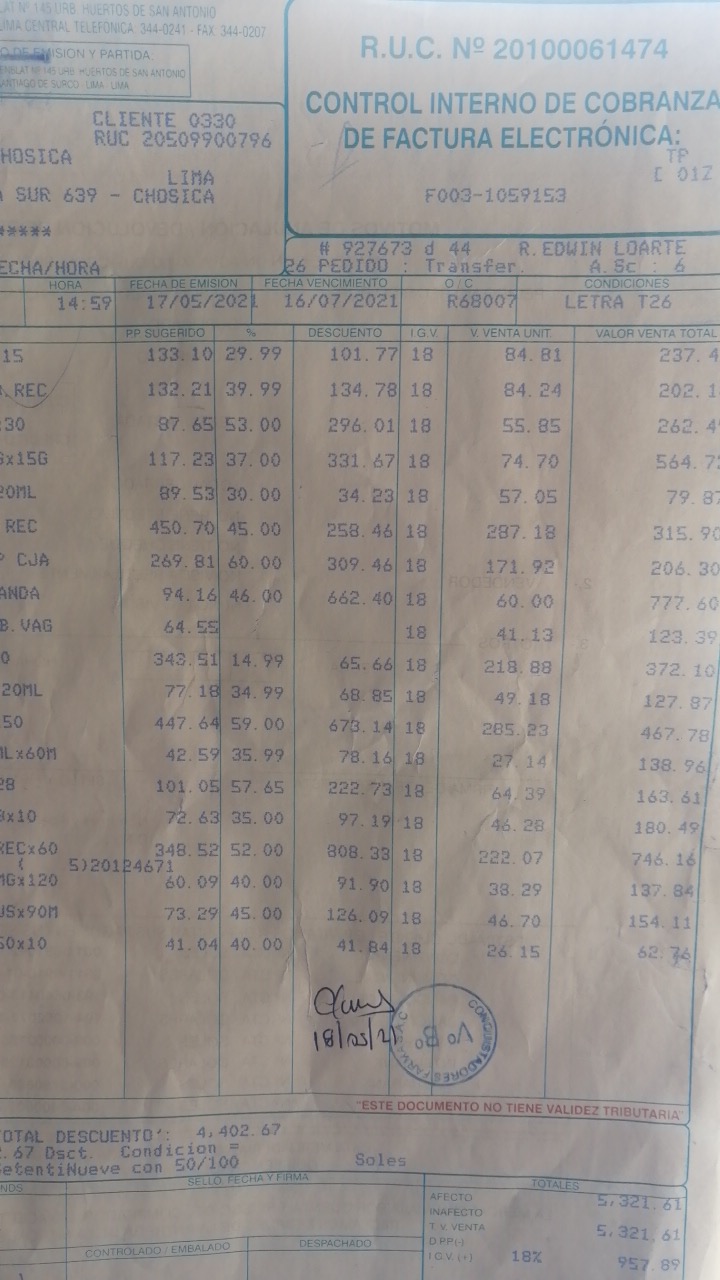 LAT Nº 145 URB. HUERTOS DE SAN ANTONIO
LIMA CENTRAL TELEFONICA: 344-0241 - FAX: 344-0207
DE EMISION Y PARTIDA
Nº 145 URB. HUERTOS DE SAN ANTONIO
SANTIAGO DE SURCO - LIMA - LIMA
R.U.C. Nº 20100061474
CONTROL INTERNO DE COBRANZA
DE FACTURA ELECTRÓNICA:
TP
[ 01Z
F003-1059153
CLIENTE 0330
RUC 20509900796
HOSICA
LIMA
SUR 639 - CHOSICA
*****
# 927673 d 44 R.EDWIN LOARTE
ECHA/HORA 26 PEDIDO : Transfer. A.Sc : 6
HORA FECHA DE EMISION FECHA VENCIMIENTO O / C CONDICIONES
14:59 17/05/2021 16/07/2021 R68007 LETRA T26
PP SUGERIDO % DESCUENTO I.G.V. V. VENTA UNIT. VALOR VENTA TOTAL
15 133.10 29.99 101.77 18 84.81 237.4
REC 132.21 39.99 134.78 18 84.24 202.1
:30 87.65 53.00 296.01 18 55.85 262.4
x15G 117.23 37.00 331.67 18 74.70 564.7
20ML 89.53 30.00 34.23 18 57.05 79.8
REC 450.70 45.00 258.46 18 287.18 315.90
CJA 269.81 60.00 309.46 18 171.92 206.30
ANDA 94.16 46.00 662.40 18 60.00 777.60
B. VAG 64.55 18 41.13 123.39
0 343.51 14.99 65.66 18 218.88 372.10
20ML 77.18 34.99 68.85 18 49.18 127.87
50 447.64 59.00 673.14 18 285.23 467.78
Lx60M 42.59 35.99 78.16 18 27.14 138.96
28 101.05 57.65 222.73 18 64.39 163.61
x10 72.63 35.00 97.19 18 46.28 180.49
RECx60 348.52 52.00 808.33 18 222.07 746.16
( 5)20124671
MGx120 60.09 40.00 91.90 18 38.29 137.84
USx90M 73.29 45.00 126.09 18 46.70 154.11
50x10 41.04 40.00 41.84 18 26.15 62.76
18/05/21
CONQUISTADORES FARMA S.A.C
Vo Bo
"ESTE DOCUMENTO NO TIENE VALIDEZ TRIBUTARIA"
TOTAL DESCUENTO': 4,402.67
2.67 Dsct. Condicion =
SetentiNueve con 50/100 Soles
SELLO, FECHA Y FIRMA TOTALES
AFECTO 5,321.61
INAFECTO
T. V. VENTA 5,321.61
D.PP(-)
I.G.V. (+) 18% 957.89
CONTROLADO / EMBALADO DESPACHADO